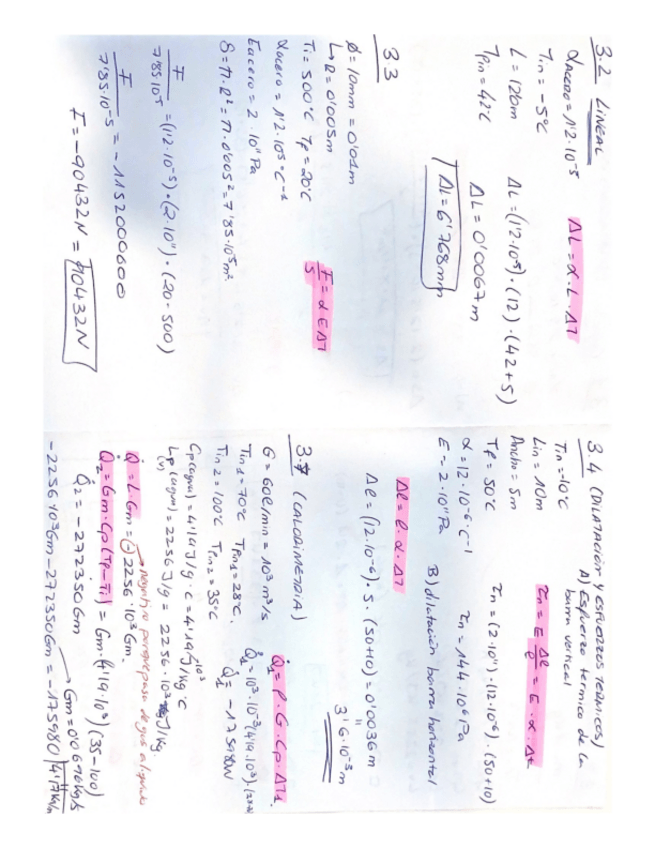 3.2 LINEAL
αAcero = 1'2·10⁻⁵
Tin = -5°C
L = 120m
Tfin = 42°C
ΔL = α · L · ΔT
ΔL = (1'2·10⁻⁵) · (12) · (42+5)
ΔL = 0'0067m
Δl = 6'768mm
3.3
ø = 10mm = 0'01m
↳ R = 0'005m
Ti = 500°C Tf = 20°C
αacero = 1'2·10⁻⁵ °C⁻¹
Eacero = 2·10¹¹ Pa
F/S = α E ΔT
S = π·R² = π·0'005² = 7'85·10⁻⁵ m²
F/7'85·10⁵ = (1'2·10⁻⁵) · (2·10¹¹) · (20-500)
F/7'85·10⁻⁵ = -1152000000
F = -90432N = 90432N
3.4 (DILATACIÓN y ESFUERZOS TERMICOS)
A) Esfuerzo termico de la
barra vertical
Tin = -10°C
Lin = 10m
Ancho = 5m
Tf = 50°C
α = 12·10⁻⁶ °C⁻¹
E = 2·10¹¹ Pa
τn = E Δl/l = E · α · Δt
τn = (2·10¹¹) · (12·10⁻⁶) · (50+10)
τn = 144·10⁶ Pa
B) dilatación barra horizontal
Δl = l · α · ΔT
Δl = (12·10⁻⁶) · 5 · (50+10) = 0'0036m
"
3'6·10⁻³ m
3.7 (CALORIMETRIA)
G = 60l/min = 10⁻³ m³/s
Tin1 = 70°C Tfin1 = 28°C.
Tin2 = 100°C Tfin2 = 35°C
Cp(agua) = 4'19 J/g·C = 4'19·10³ J/kg·C
Lp(agua) = 2256 J/g = 2256·10³ J/kg.
Q̇1 = ρ · G · Cp · ΔT1.
Q̇1 = 10³·10⁻³(4'19·10³)·(28-70)
Q̇1 = -175980W
Q̇ = L·Gm = (-) 2256·10³ Gm.
negativo porque pasa de gas a liquido
Q̇2 = Gm·Cp(Tf-Ti) = Gm·(4'19·10³)(35-100)
Q̇2 = -272350 Gm
-2256·10³Gm - 272350Gm = -175980
Gm = 0'0696 kg/s